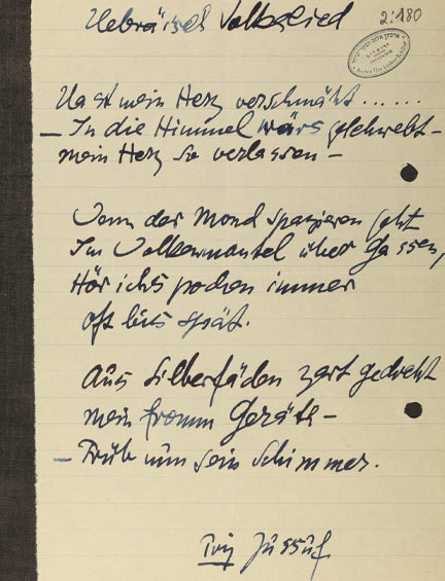 Hebräisch Volkslied
2:180
Da ist mein Herz verschmäht......
– In die Himmel wärs geschwebt –
mein Herz so verlassen –
Wenn der Mond spazieren geht
Im Wolkenmantel über Gassen,
Hör ichs pochen immer
oft bis spät.
Aus Silberfäden zart gedreht
mein fromm Geräte –
– Trüb nun sein Schimmer.
Jussuf